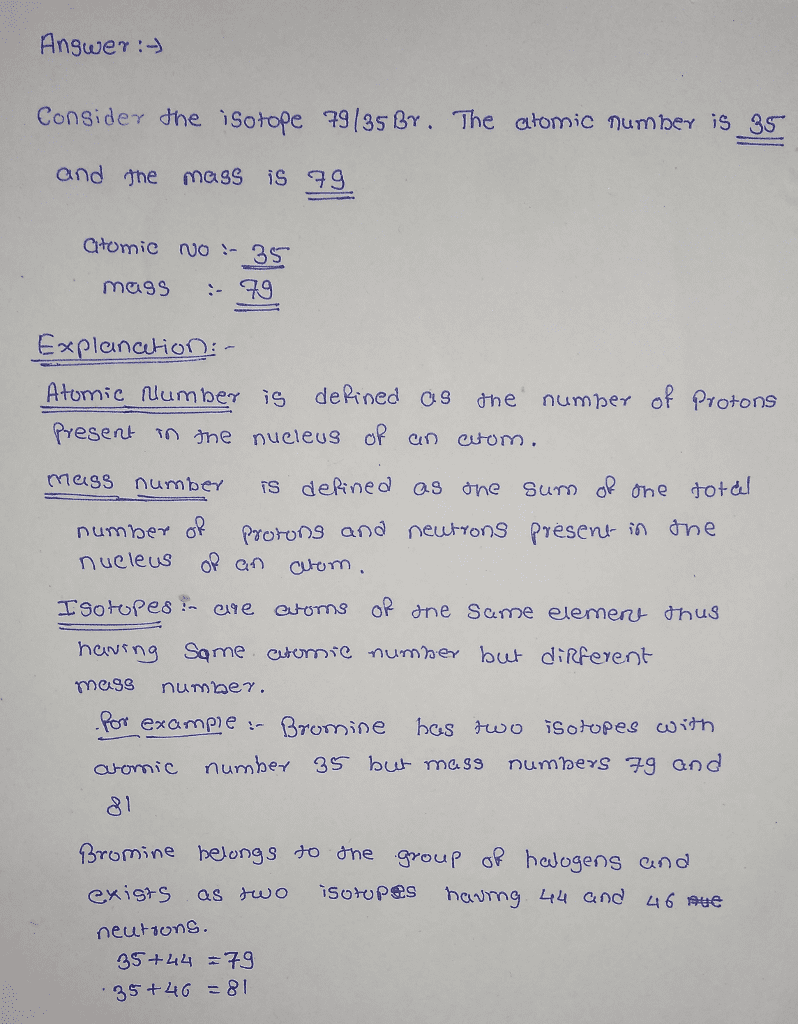 Answer :→
Consider the isotope 79/35 Br. The atomic number is 35
and the mass is 79
atomic No :- 35
mass :- 79
Explanation :-
Atomic Number is defined as the number of Protons
Present in the nucleus of an atom.
mass number is defined as the sum of the total
number of Protons and neutrons present in the
nucleus of an atom.
Isotopes :- are atoms of the same element thus
having same atomic number but different
mass number.
for example :- Bromine has two isotopes with
atomic number 35 but mass numbers 79 and
81
Bromine belongs to the group of halogens and
exists as two isotopes having 44 and 46
neutrons.
35+44 = 79
35+46 = 81